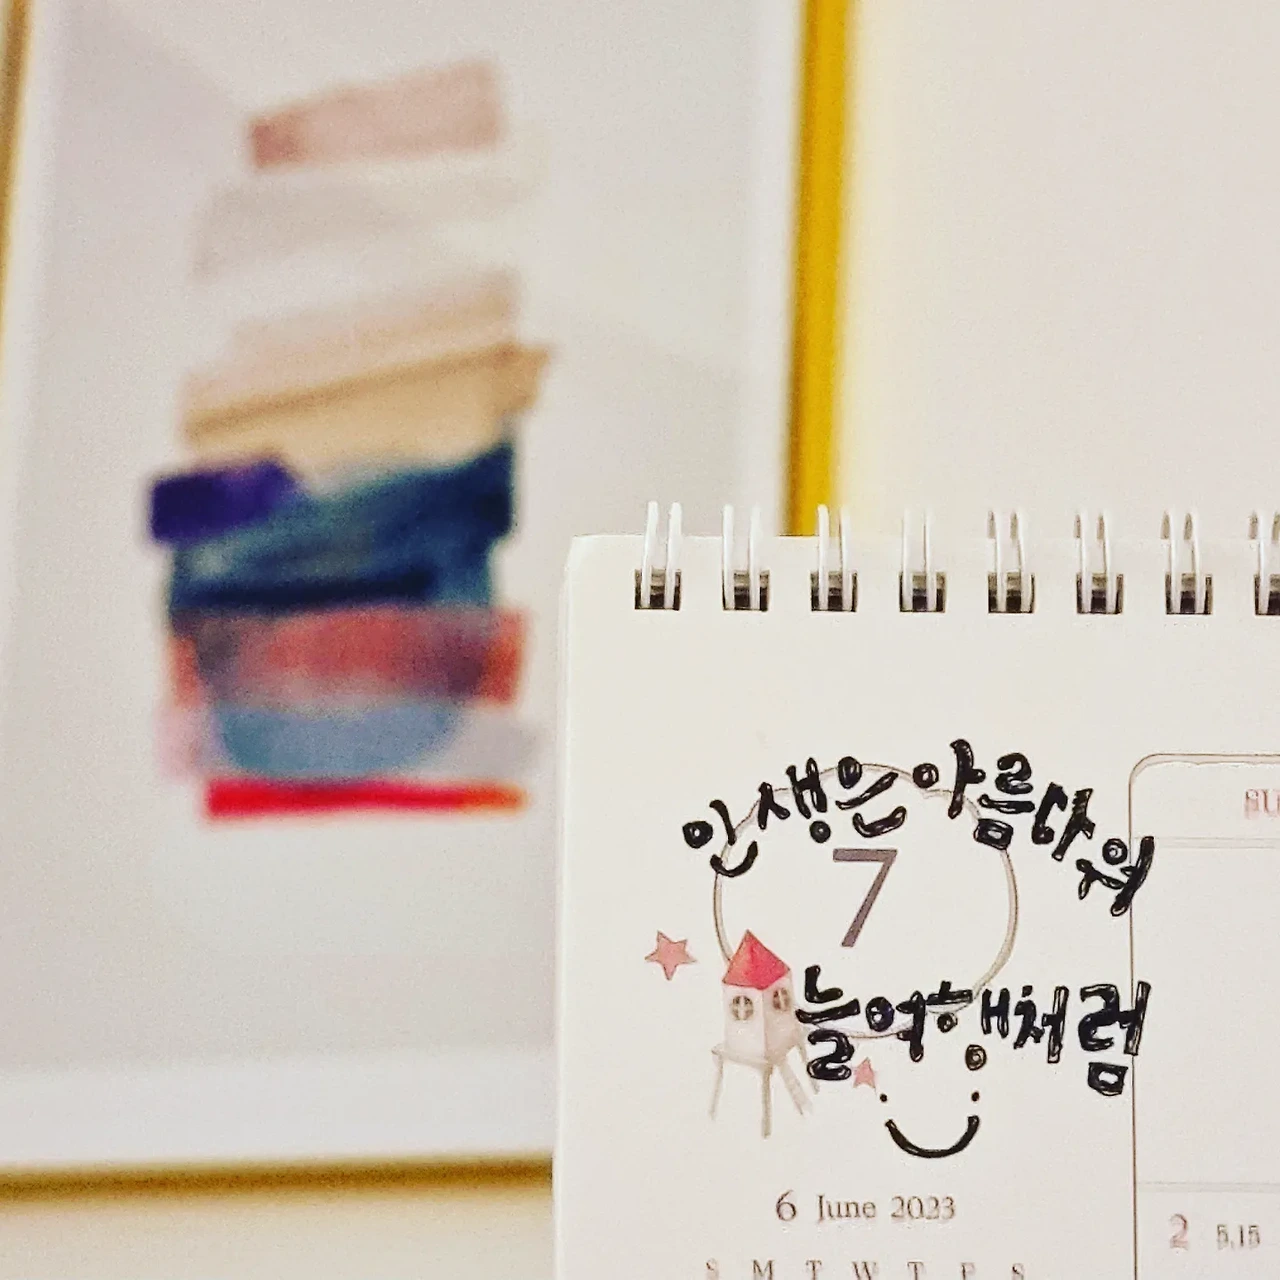 인생은 아름다워
7
늘 여행처럼
6 June 2023
S M T W T F S
SU
2 5.15